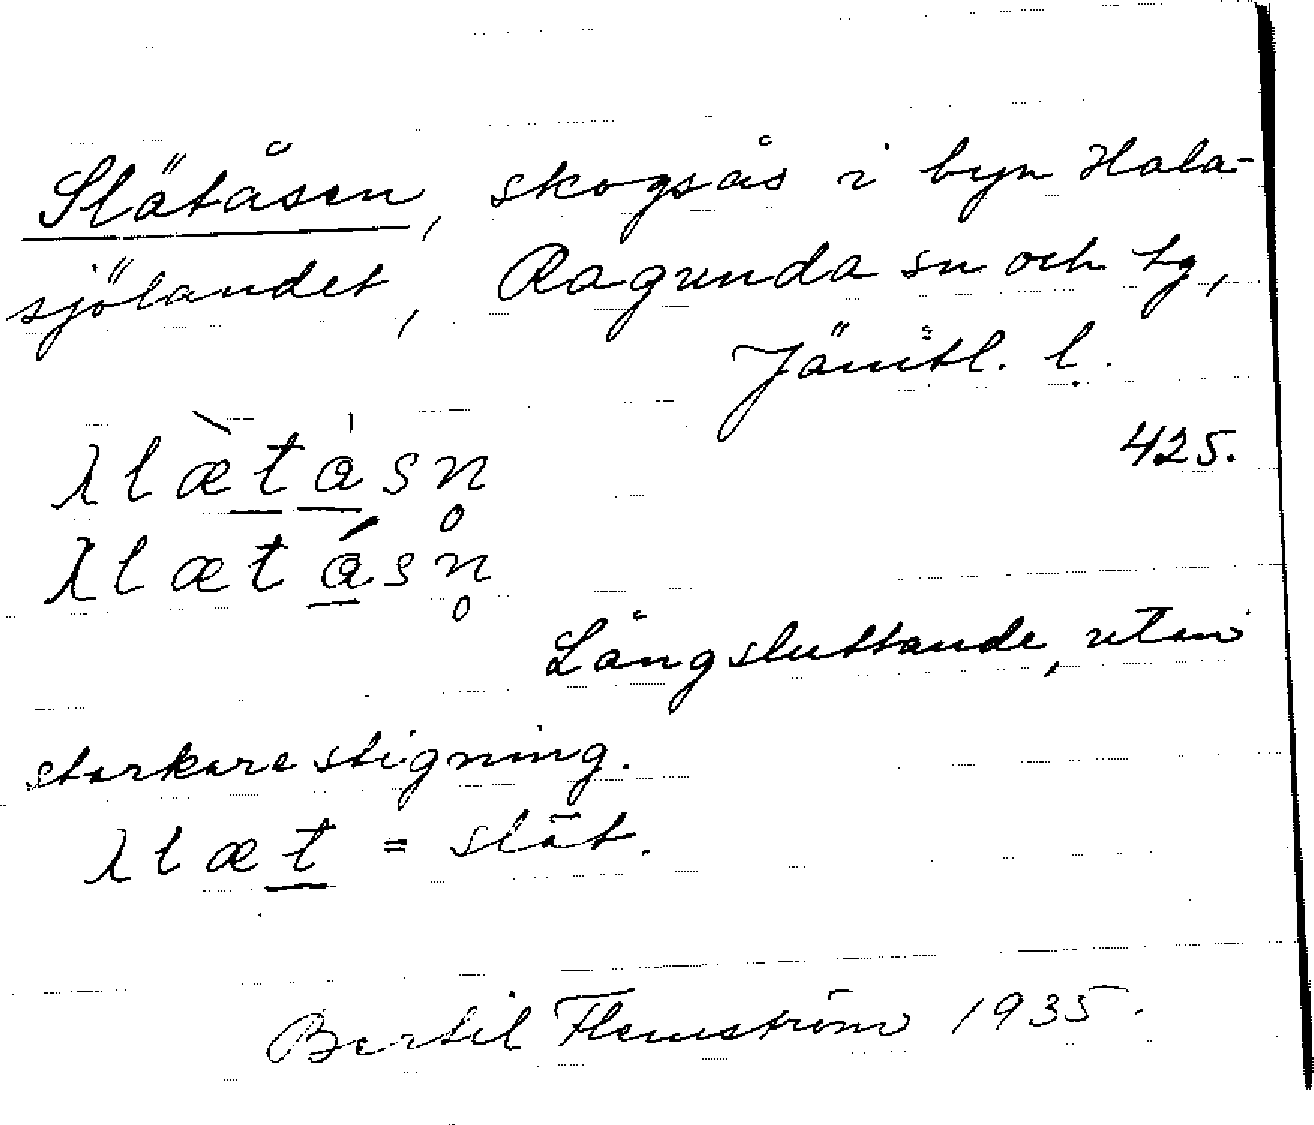 Slätåsen, skogsås i byn Hala-
sjölandet, Ragunda sn och tg,
Jämtl. l.
425.
λlæ̀t̲à̲sn̥
λlætá̲sn̥
Långsluttande, utan
starkare stigning.
λlæt̲ = slät.
Bertil Flemström 1935.